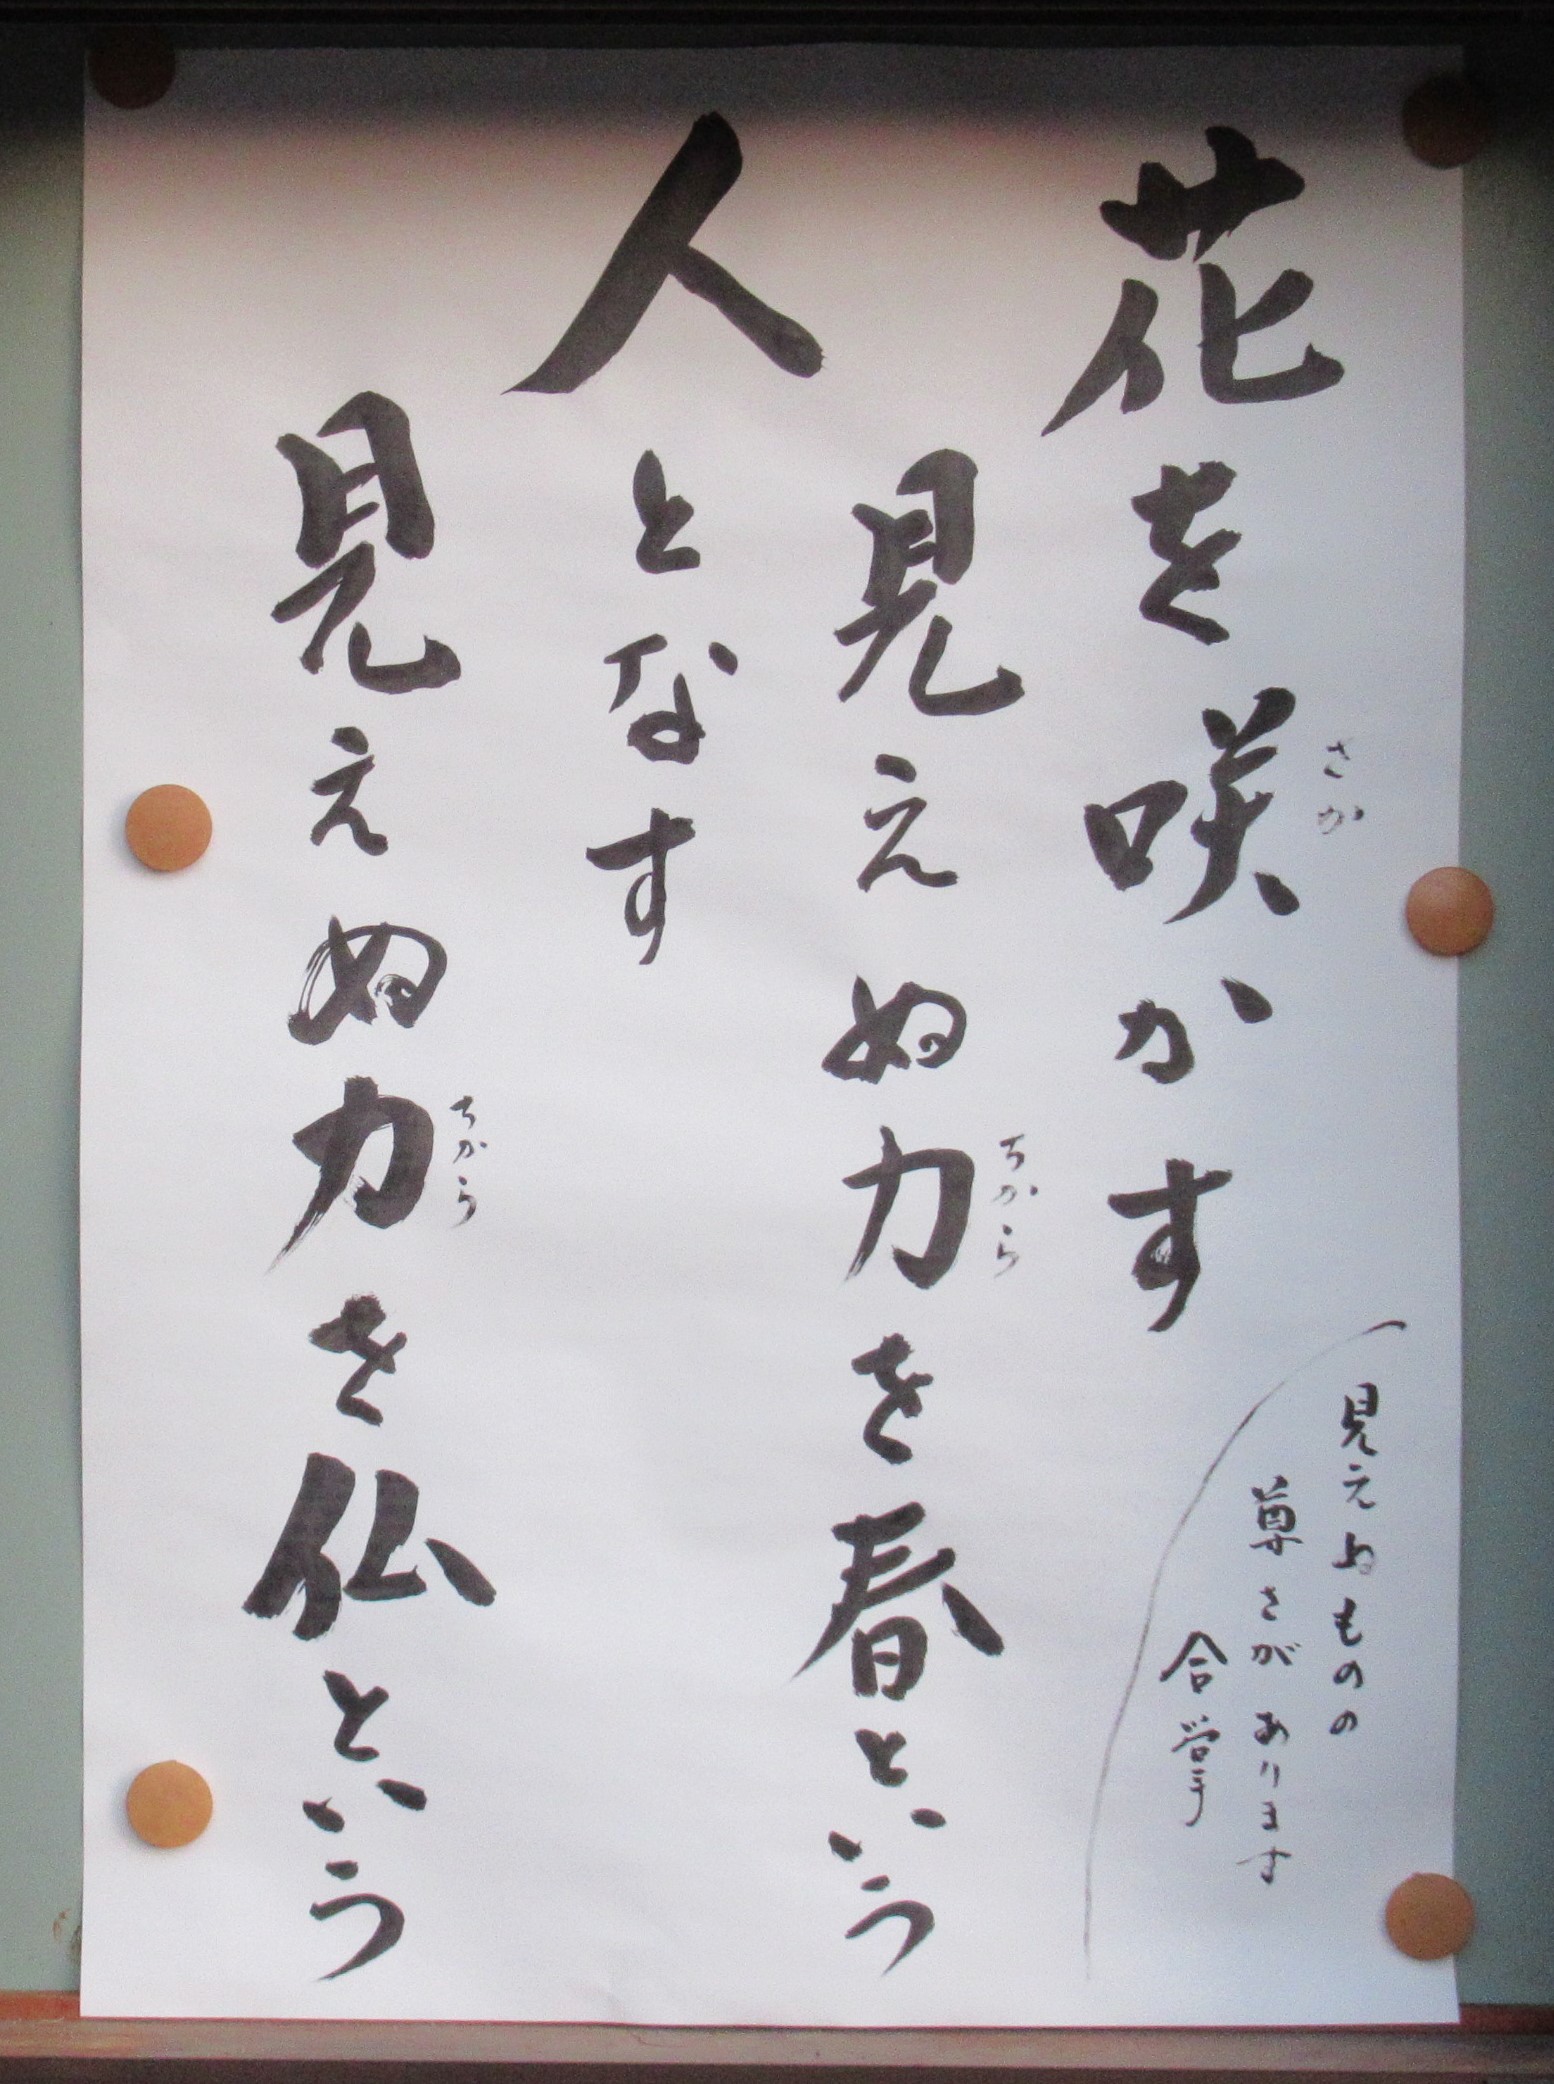 花を咲かす
さか
見えぬ力を春という
ちから
人となす
見えぬ力を仏という
ちから
見えぬものの
尊さがあります
合掌